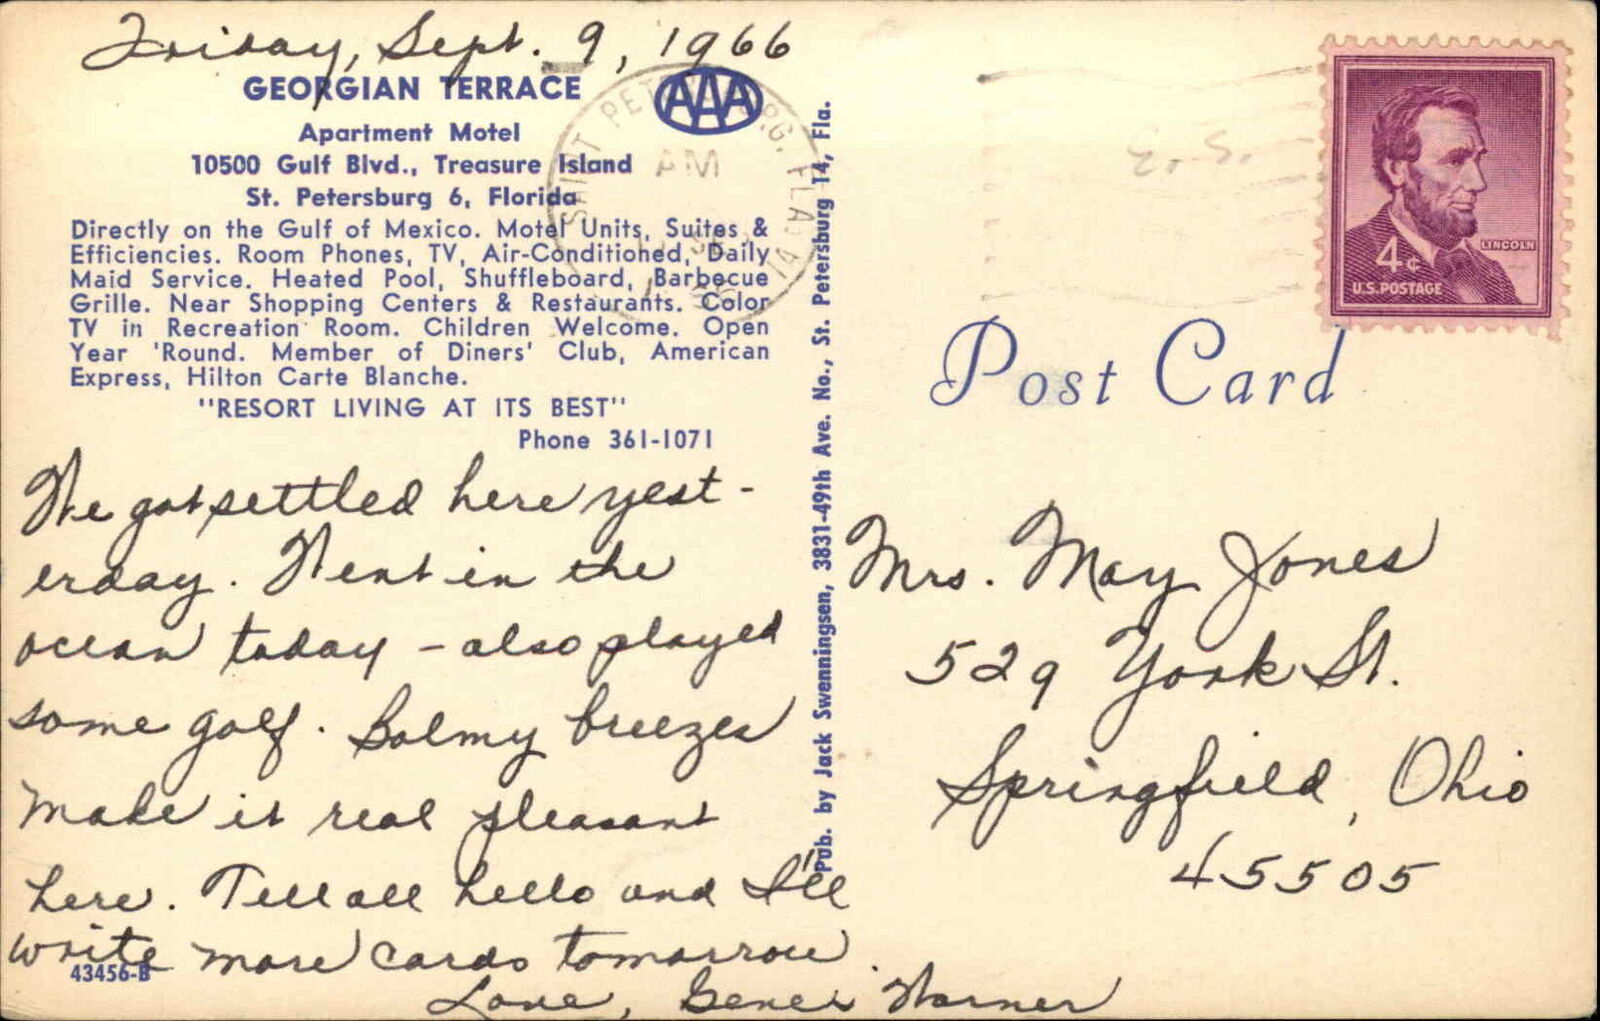 Friday, Sept. 9, 1966
GEORGIAN TERRACE
AAA
Apartment Motel
10500 Gulf Blvd., Treasure Island
St. Petersburg 6, Florida
Directly on the Gulf of Mexico. Motel Units, Suites &
Efficiencies. Room Phones, TV, Air-Conditioned, Daily
Maid Service. Heated Pool, Shuffleboard, Barbecue
Grille. Near Shopping Centers & Restaurants. Color
TV in Recreation Room. Children Welcome. Open
Year 'Round. Member of Diners' Club, American
Express, Hilton Carte Blanche.
"RESORT LIVING AT ITS BEST"
Phone 361-1071
We got settled here yest-
erday. Went in the
ocean today - also played
some golf. Balmy breezes
make it real pleasant
here. Tell all hello and I'll
write more cards tomorrow.
Love, Gene Warner
43456-B
Pub. by Jack Swenningsen, 3831-49th Ave. No., St. Petersburg 14, Fla.
SAINT PETERSBURG, FLA
AM
E. S.
LINCOLN
4¢
U.S. POSTAGE
Post Card
Mrs. May Jones
529 York St.
Springfield, Ohio
45505